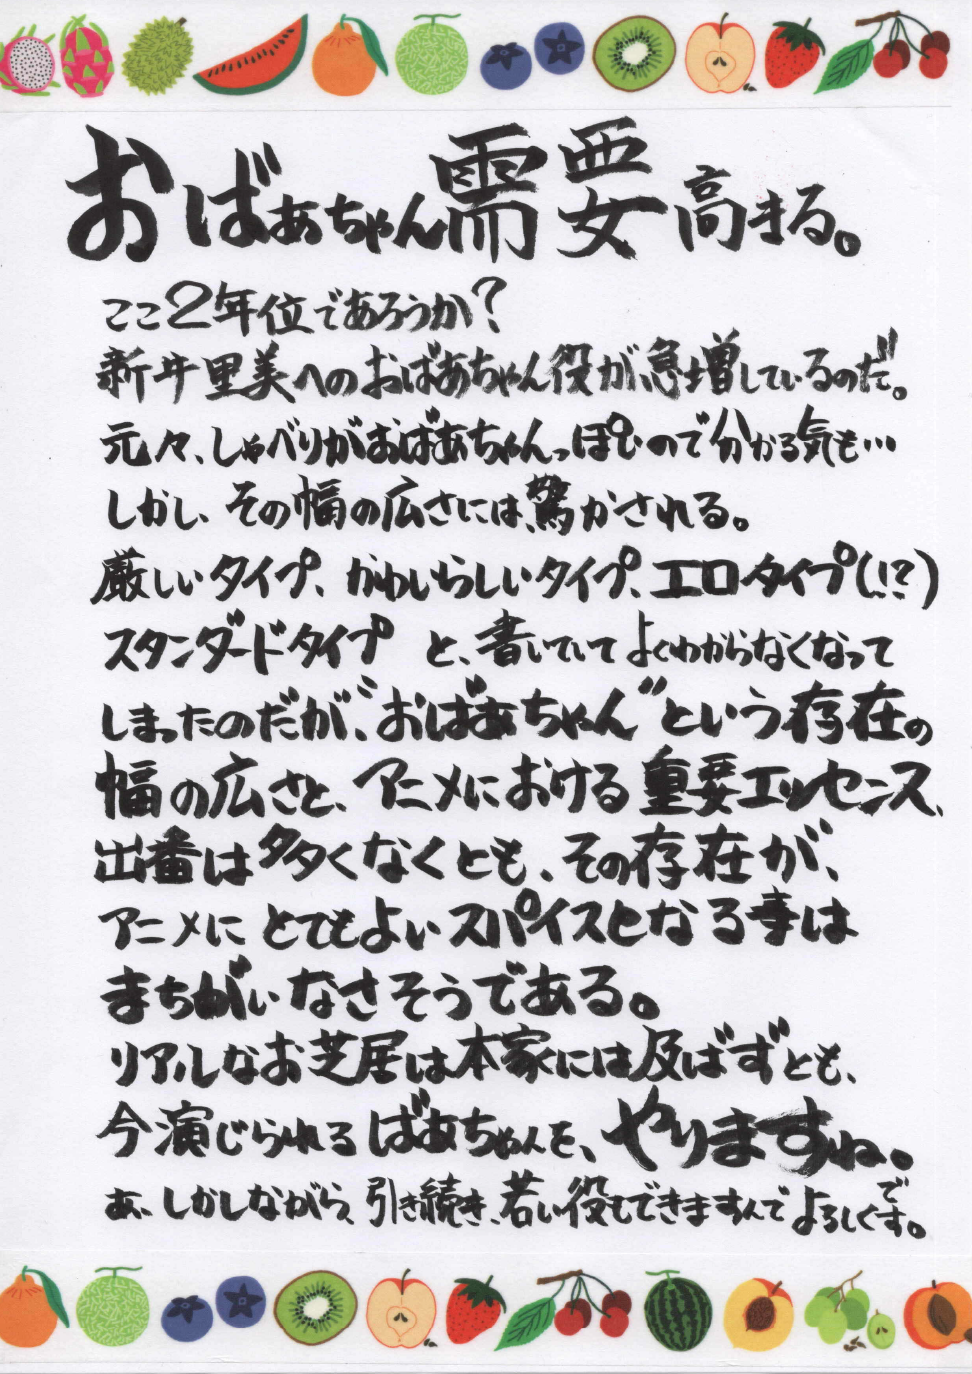 おばぁちゃん需要高まる。
ここ2年位であろうか?
新井里美へのおばあちゃん役が急増しているのだ。
元々、しゃべりがおばあちゃんっぽいので分かる気も…
しかし、その幅の広さには、驚かされる。
厳しいタイプ、かわいらしいタイプ、エロタイプ(!?)
スタンダードタイプ と、書いていてよくわからなくなって
しまったのだが、“おばあちゃん”という存在の
幅の広さと、アニメにおける重要エッセンス、
出番は多くなくとも、その存在が、
アニメにとてもよいスパイスとなる事は
まちがいなさそうである。
リアルなお芝居は本家には及ばずとも、
今演じられるばあちゃんを、やりますね。
あ、しかしながら、引き続き、若い役もできますんでよろしくです。